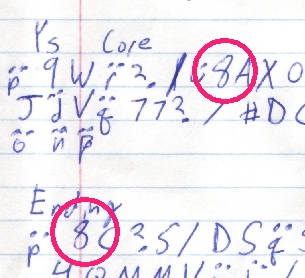 Ys Core
p̈ 9 W ï 2. / ü 8 A X O
J j V q̈ 7 7 2. / # D C
ö n̈ p̈
Ending
p̈ 8 C 2. 5 / D S q̈ 3
4 Q M M V